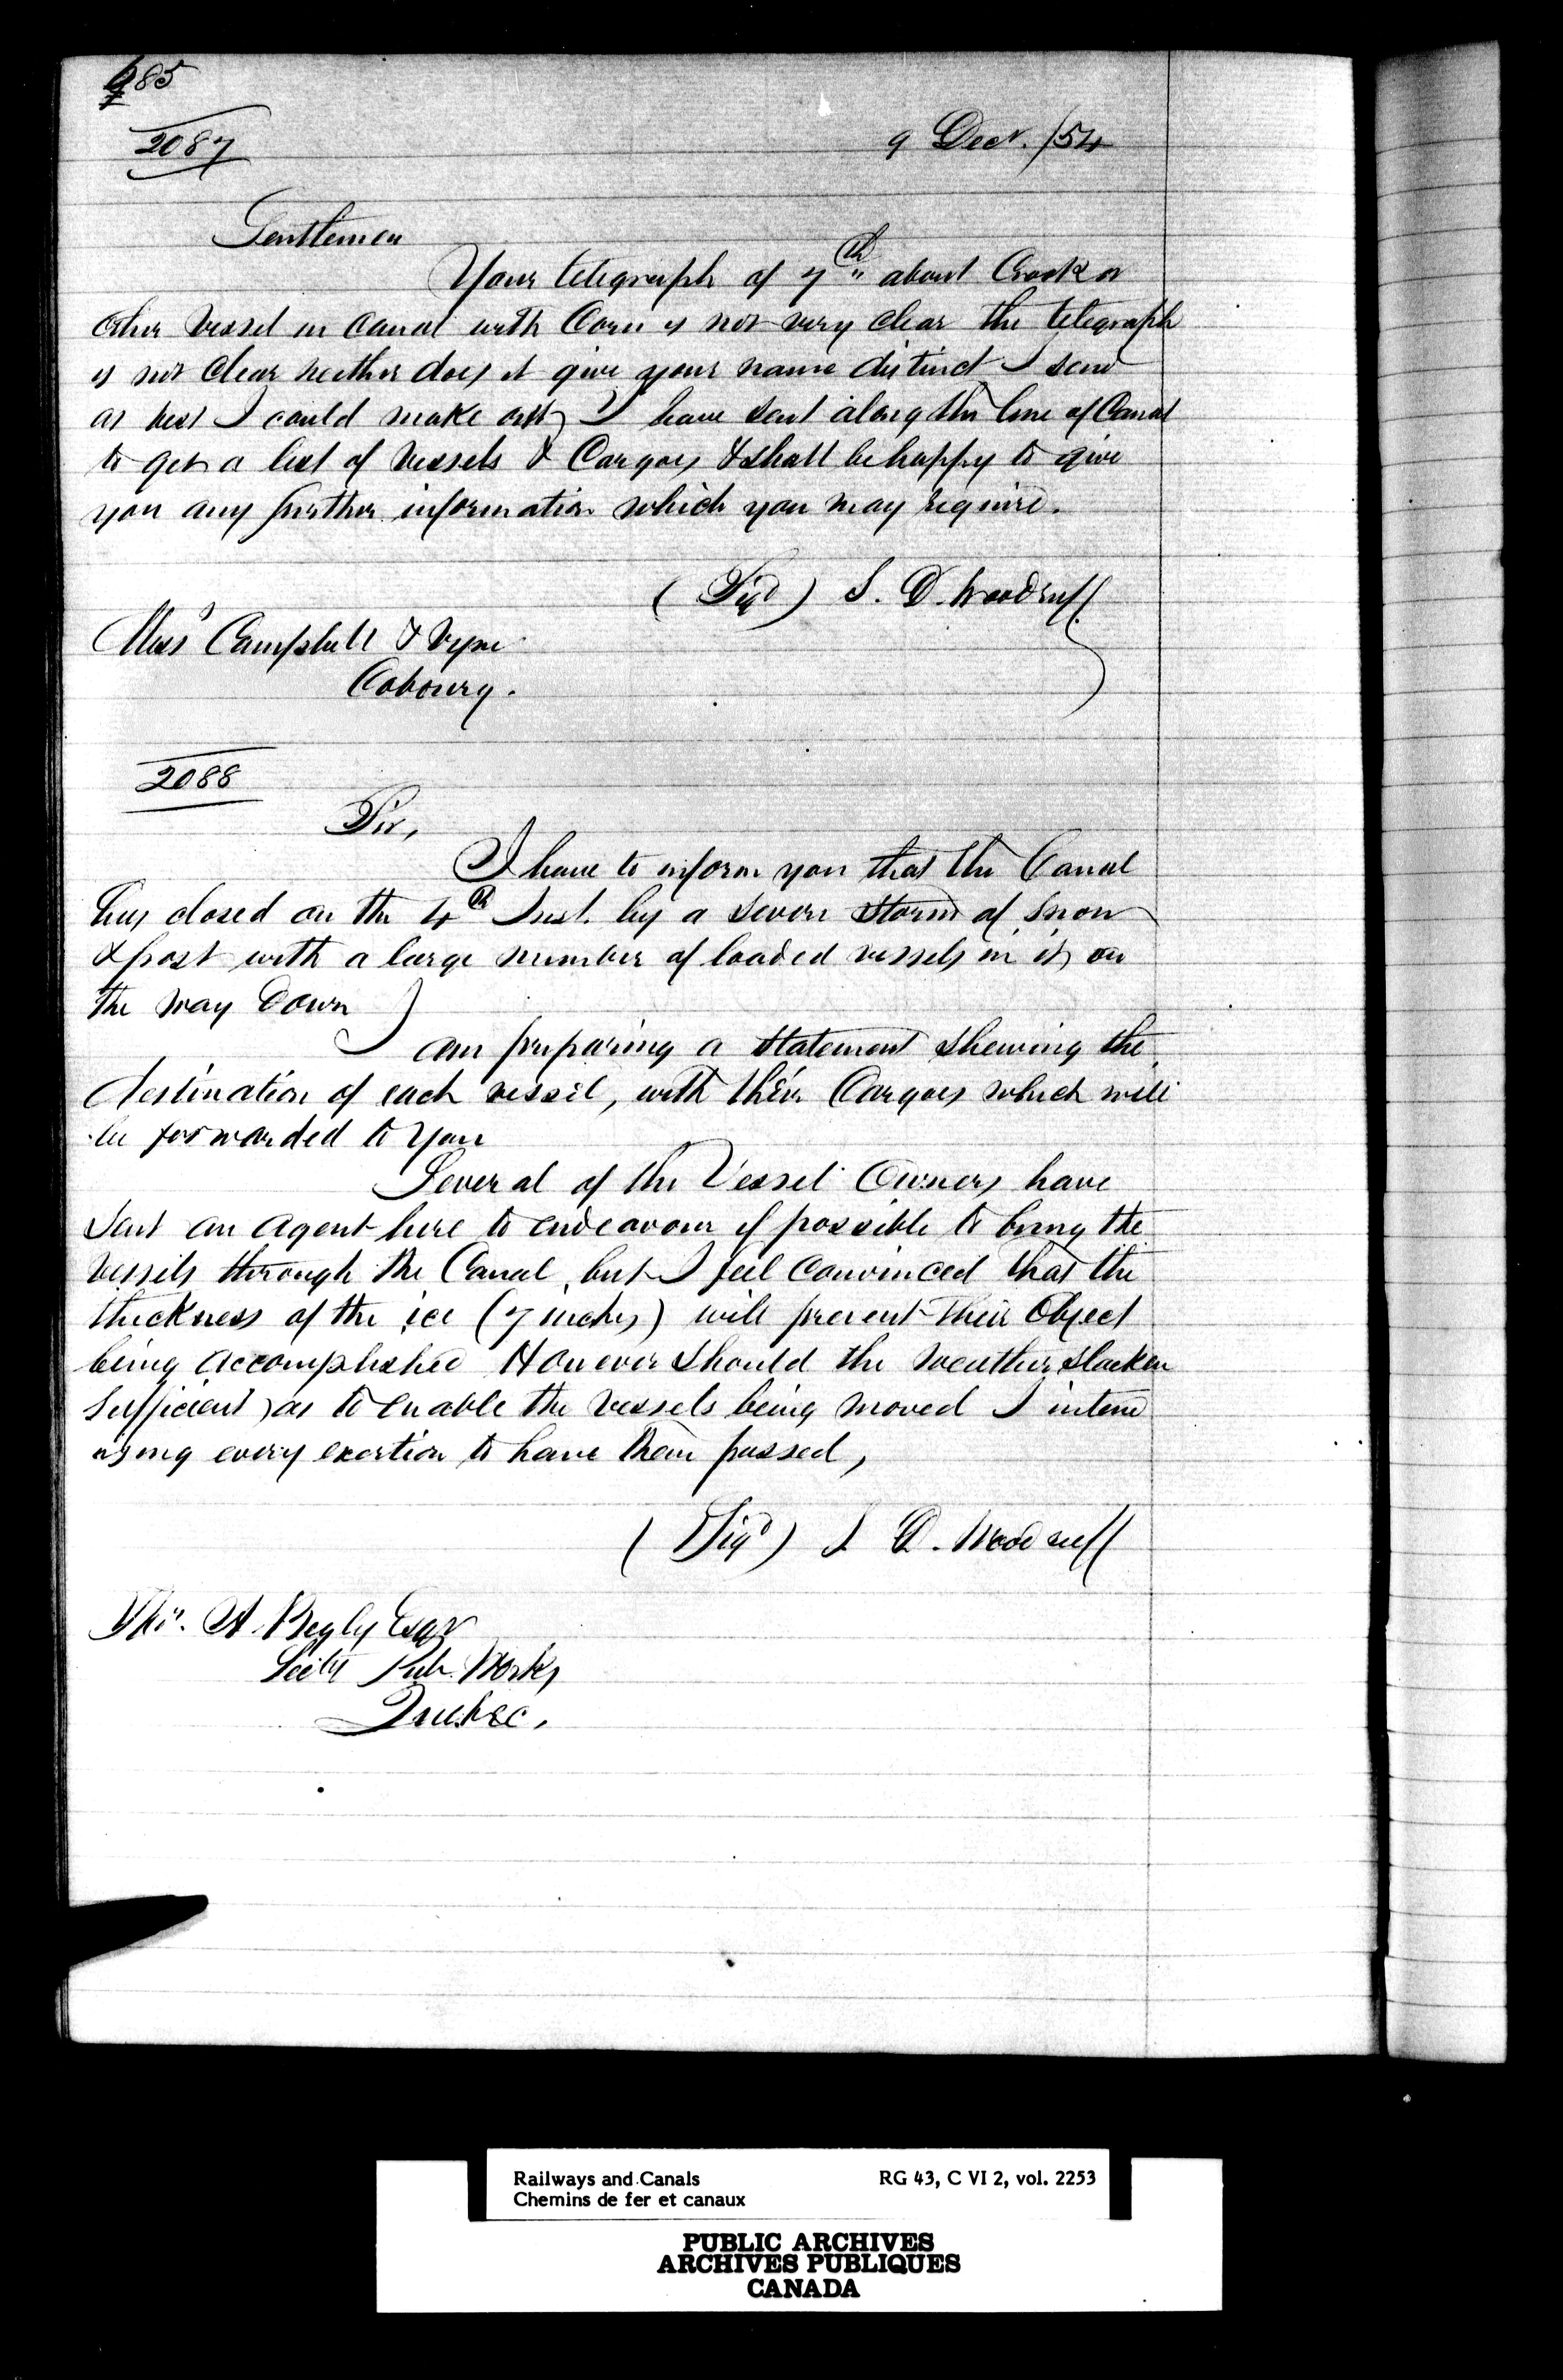 685
2087
9 Decr. /54
Gentlemen
Your telegraph of 7th about Crook or
other vessel in Canal with Corn is not very clear the telegraph
is not clear neither does it give your name distinct I send
as best I could make out, I have sent along the line of Canal
to get a list of Vessels & Cargoes & shall be happy to give
you any further information which you may require.
(Sigd) S. D. Woodruff
Messrs Campbell &
Cobourg.
2088
Sir,
I have to inform you that the Canal
has closed on the 4th Inst. by a severe storm of Snow
& frost with a large number of loaded vessels in it, on
the way down
I am preparing a statement shewing the
destination of each vessel, with their Cargoes which will
be forwarded to you
Several of the Vessel Owners have
sent an agent here to endeavour if possible to bring the
Vessels through the Canal, but I feel convinced that the
thickness of the ice (7 inches) will prevent their Object
being accomplished However should the weather slacken
sufficient, as to enable the vessels being moved I intend
using every exertion to have them passed,
(Sigd) S D. Woodruff
Thos. A. Begly Esqr
Secty Pub. Works,
Quebec.
Railways and Canals RG 43, C VI 2, vol. 2253
Chemins de fer et canaux
PUBLIC ARCHIVES
ARCHIVES PUBLIQUES
CANADA